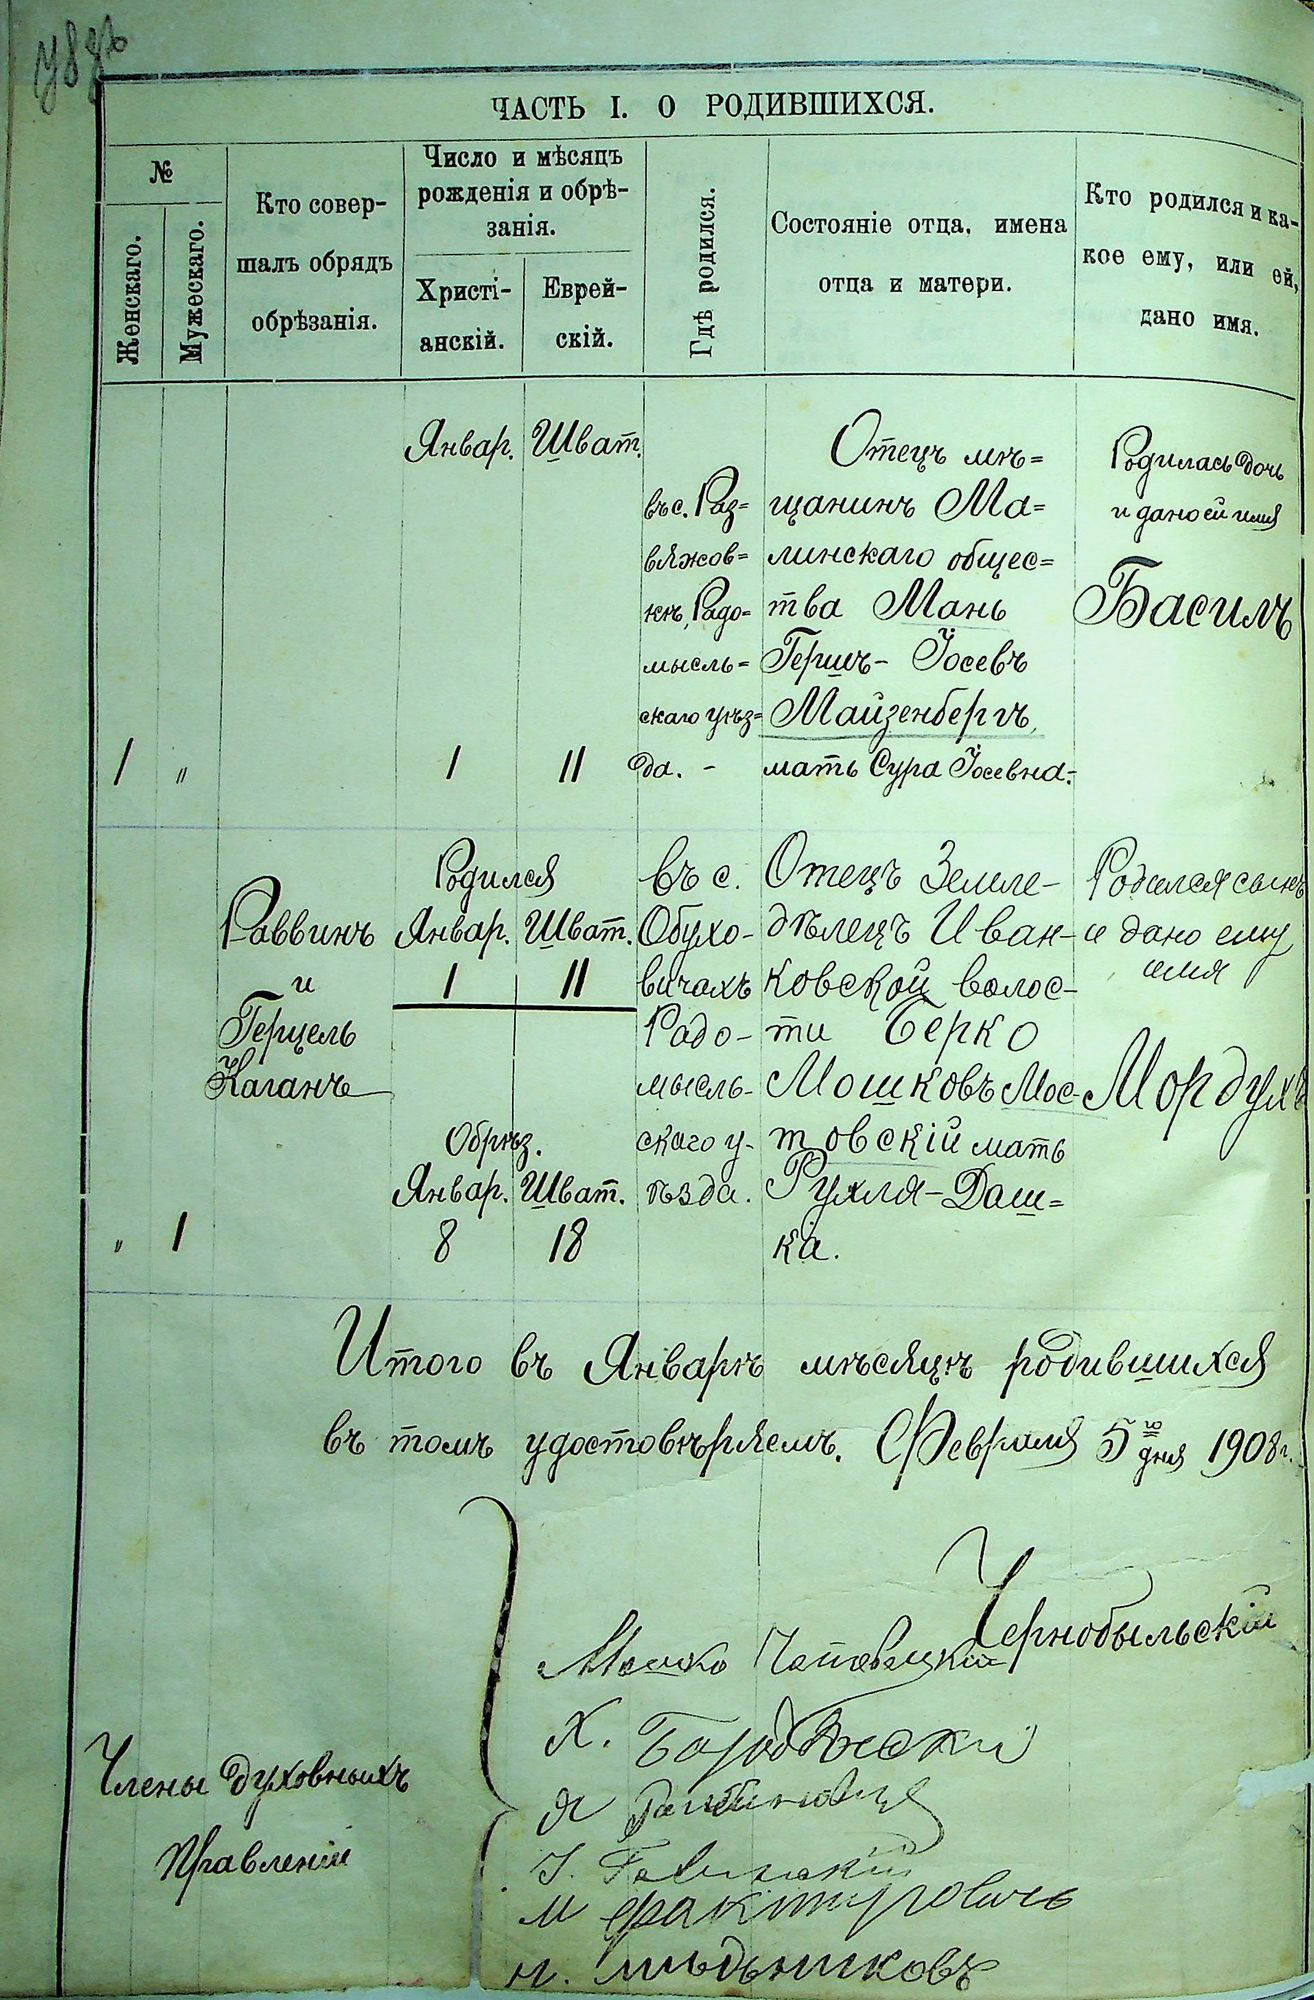 ЧАСТЬ I. О РОДИВШИХСЯ.
№
Женскаго.
Мужескаго.
Кто совер-
шалъ обрядъ
обрѣзанія.
Число и мѣсяцъ
рожденія и обрѣ-
занія.
Христі-
анскій.
Еврей-
скій.
Гдѣ родился.
Состояніе отца, имена
отца и матери.
Кто родился и ка-
кое ему, или ей,
дано имя.
1
"
Январ.
1
Шват.
11
въ с. Раз=
вяжов=
кѣ, Радо=
мысль=
скаго уѣз=
да. -
Отецъ мѣ=
щанинъ Ма=
линскаго общес=
тва Мань
Гершъ- Іосевъ
Майзенбергъ,
мать Сура Іосевна.
Родилась дочь
и дано ей имя
Басилъ
"
1
Раввинъ
и
Герцель
Каганъ
Родился
Январ. Шват.
1 11
Обрѣз.
Январ. Шват.
8 18
въ с.
Обухо-
вичахъ
Радо-
мысль-
скаго у-
ѣзда.
Отецъ Земле-
дѣлецъ Иван-
ковской волос-
ти Берко
Мошковъ Мос-
товскій мать
Рухля-Даш=
ка.
Родился сынъ
и дано ему
имя
Мордухъ
Итого въ Январѣ мѣсяцѣ родившихся
въ томъ удостовѣряемъ. Февраля 5го дня 1908 г.
Чернобыльскій
Мошко
Х.
Члены духовныхъ
Правленій
Я
М Фактуровичъ